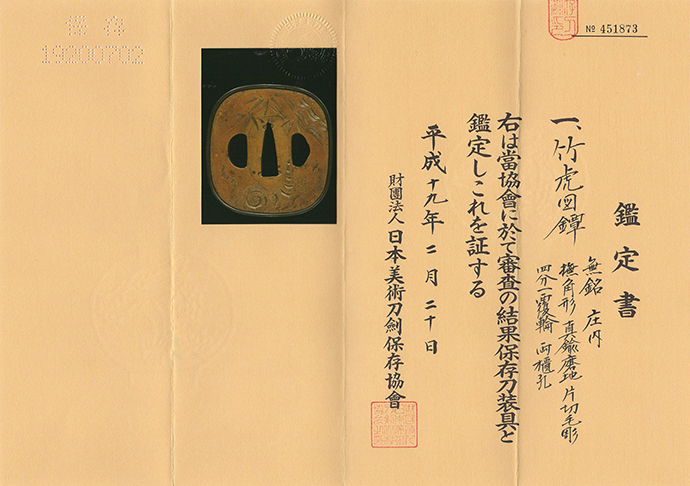 № 451873
鑑定書
一、竹虎図鐔
無銘 庄内
撫角形 真鍮磨地 片切毛彫
四分一覆輪 両櫃孔
右は當協會に於て審査の結果保存刀装具と
鑑定しこれを証する
平成十九年二月二十日
財團法人日本美術刀劍保存協會
保存
19200702